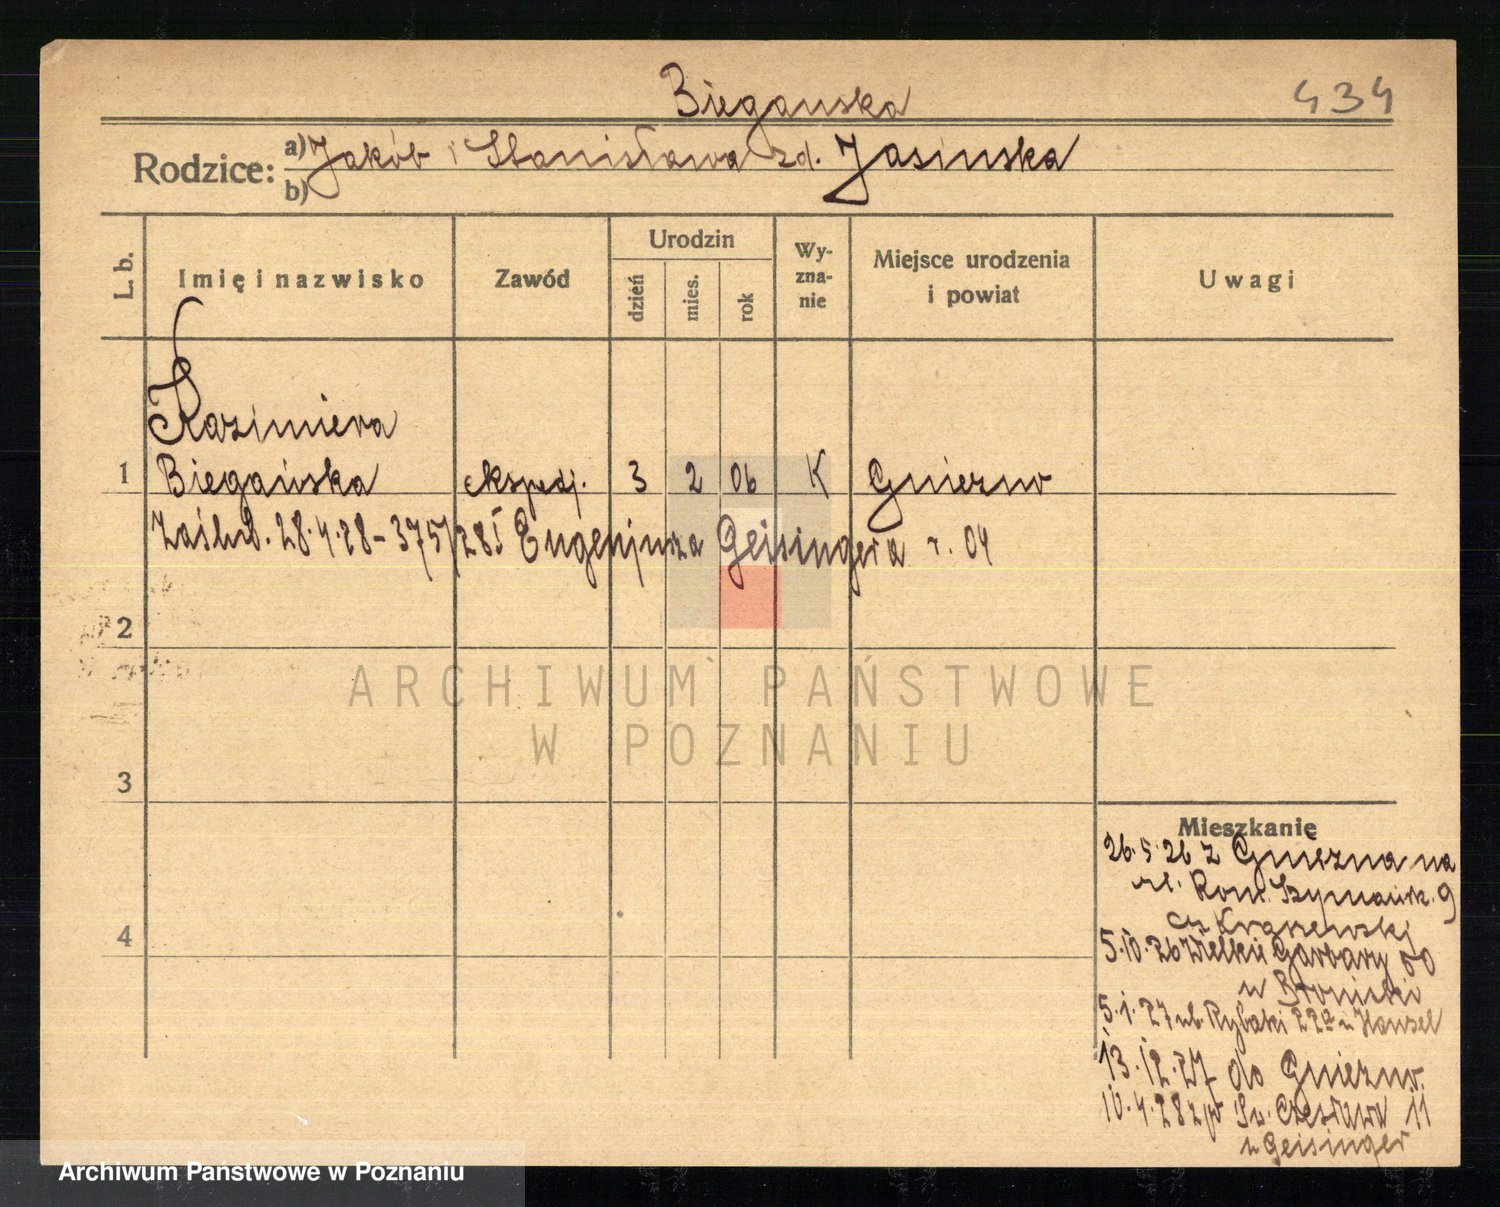 Bieganska 434
Rodzice: a) Jakób i Stanisława zd. Jasinska
b)
L. b. Imię i nazwisko Zawód Urodzin dzień mies. rok Wy-zna-nie Miejsce urodzenia i powiat Uwagi
Kazimiera
1 Biegańska ekspedj. 3 2 06 K Gniezno
Zaślub. 28.4.28 – 375/28 I Eugenjusza Geisingera r. 04
2
ARCHIWUM PAŃSTWOWE
W POZNANIU
3
Mieszkanie
26.5.26 z Gniezna na
ul. Rom. Szymańsk. 9
Kraszewski
4
5.10.26 Wielkie Garbary 50
u Błoński
5.1.27 ul. Rybaki 22a u Hansel
13.12.27 do Gniezno
10.4.28 Św. Czesława 11
u Geisinger
Archiwum Państwowe w Poznaniu